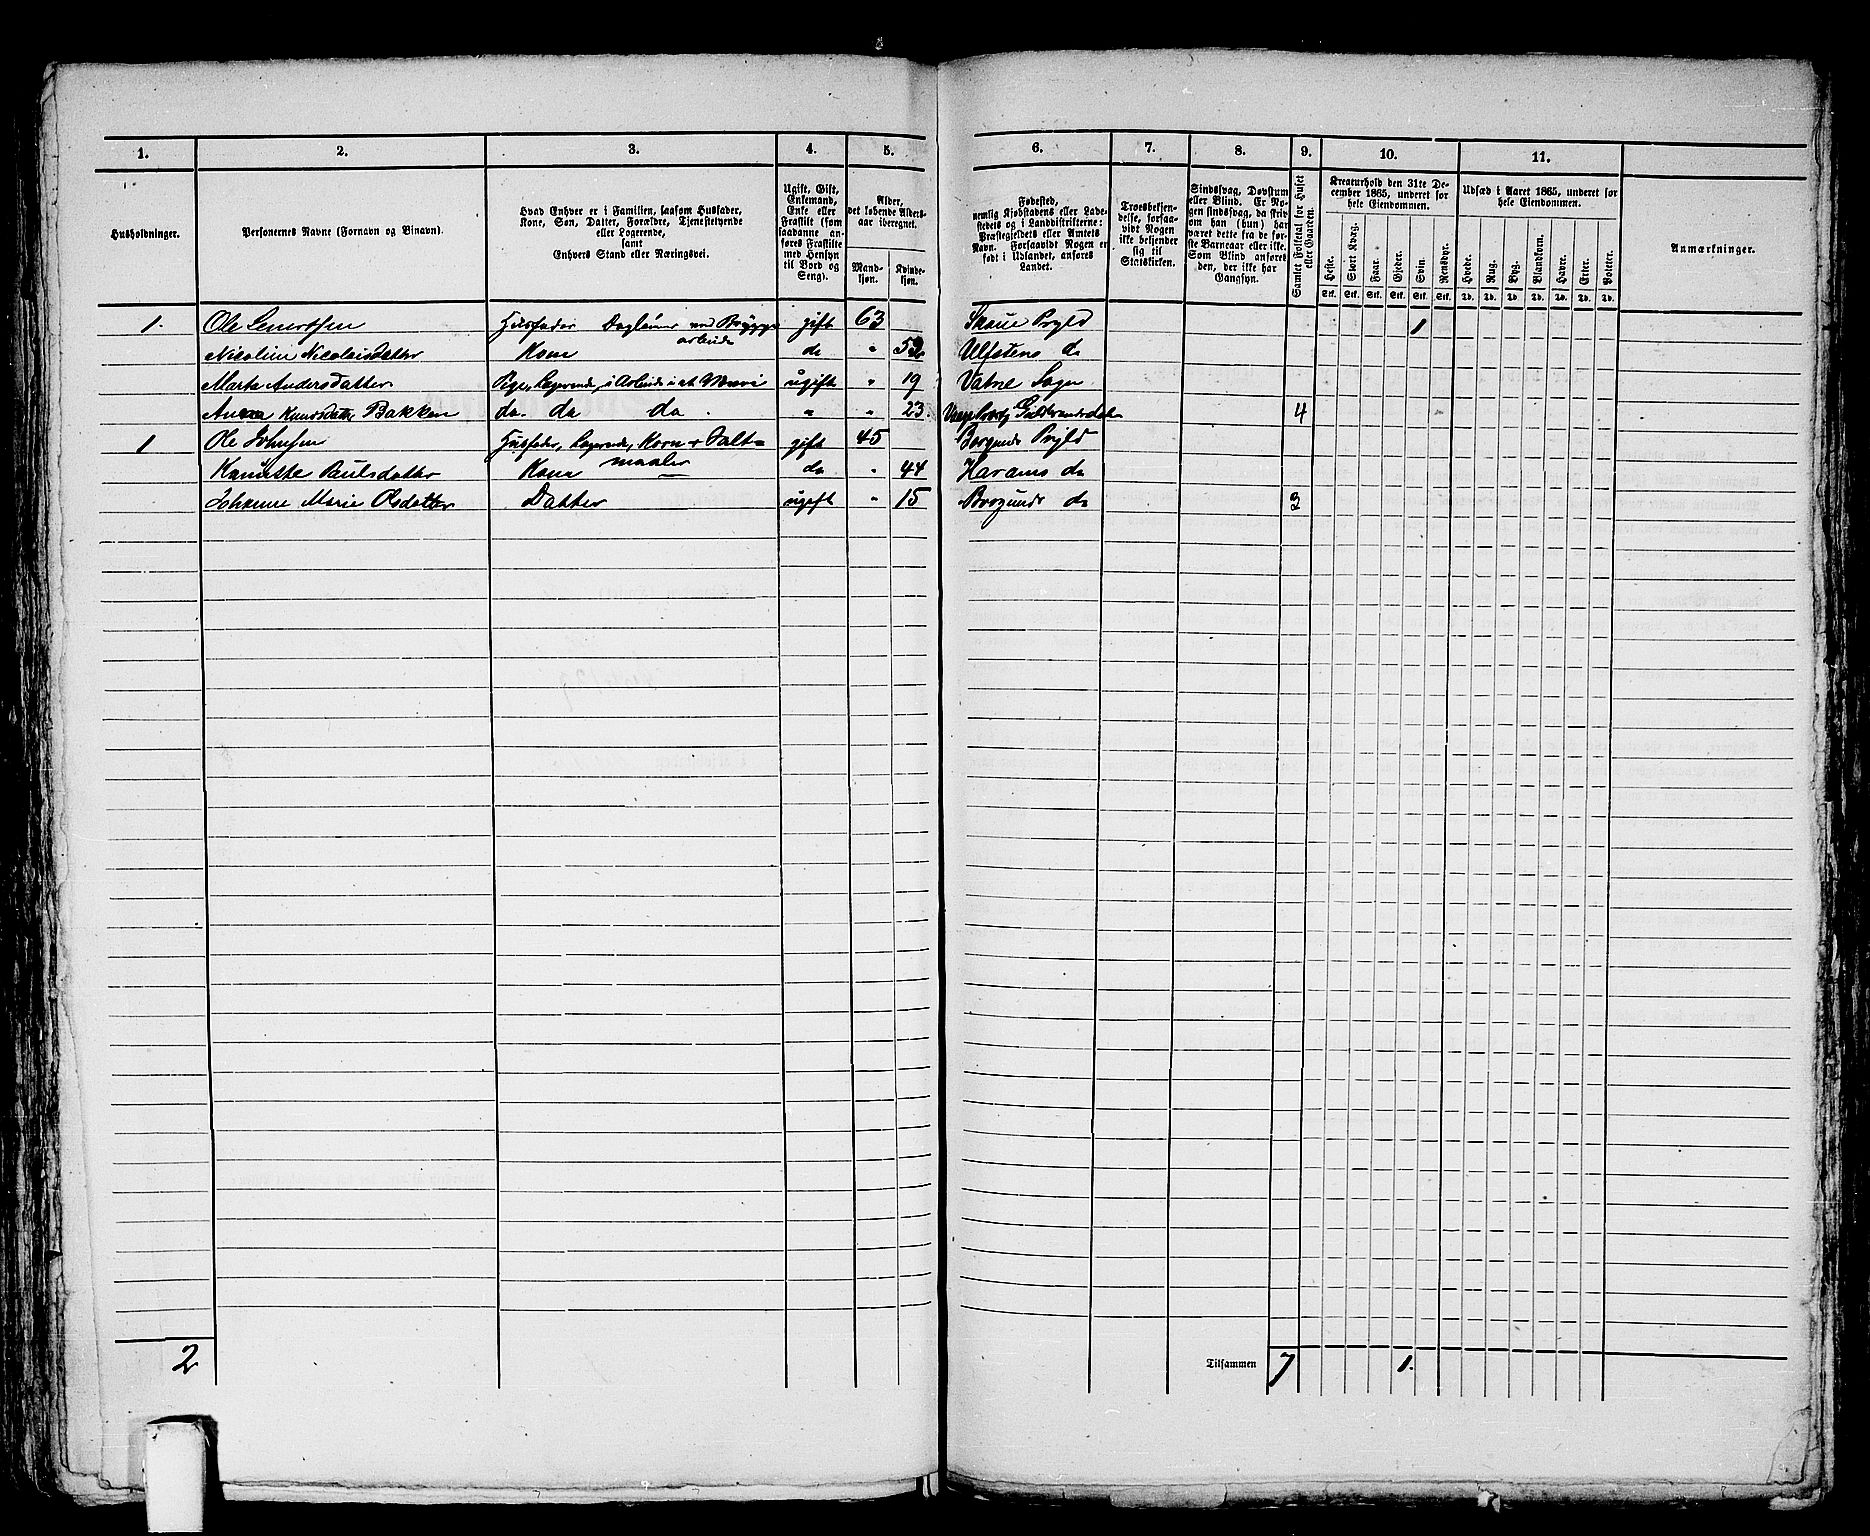 1.
2.
3.
4.
5.
6.
7.
8.
9.
10.
11.
Husholdninger.
Personernes Navne (Fornavn og Binavn).
Hvad Enhver er i Familien, saasom Husfader,
Kone, Søn, Datter, Forældre, Tjenestetyende
eller Logerende,
samt
Enhvers Stand eller Næringsvei.
Ugift, Gift,
Enkemand,
Enke eller
Fraskilt (som
saadanne an-
føres Fraskilte
med Hensyn
til Bord og
Seng).
Alder,
det løbende Alders-
aar iberegnet.
Mand-
kjøn.
Kvinde-
kjøn.
Fødested,
nemlig Kjøbstadens eller Lade-
stedets og i Landdistrikterne:
Præstegjeldets eller Amtets
Navn. Forsaavidt Nogen er
født i Udlandet, anføres
Landet.
Troesbekjen-
delse, forsaa-
vidt Nogen
ikke bekjender
sig til
Statskirken.
Sindssvag, Døvstum
eller Blind. Er No-
gen sindssvag, da skriv
om han (hun) har
været dette fra de før-
ste Barneaar eller ikke.
Som Blind anføres
den, der ikke har
Gangsyn.
Samlet Folketal for Huset
eller Gaarden.
Kreaturhold den 31te De-
cember 1865, underet for
hele Eiendommen.
Heste. Stort Kvæg. Faar. Gjeder. Svin. Rensdyr.
Stk. Stk. Stk. Stk. Stk. Stk.
Udsæd i Aaret 1865, underet for
hele Eiendommen.
Hvede. Rug. Byg. Blandkorn. Havre. Erter. Poteter.
Td. Td. Td. Td. Td. Td. Td.
Anmærkninger.
1. Ole Husfader Daglønner ved Brygge gift 63 Skaue Prgld 1
arbeide
Nicoline Nicolaisdatter Kone do " Ulfstens do
Marte Andersdatter Pige, Logerende, ugift " 19 Vatne Sogn
Anna Knudsdatter Bakken do. do do. " " 23. Gulbrandsdalen 4
1 Ole Johnsen Husfader, Logerende, Korn & Salt- gift 45 Borgunds Prgld
maaler
Paulsdatter Kone do " 44 Harams do
Johanne Marie Olsdatter Datter ugift " 15 Borgunds do 3
2 Tilsammen 7 1.